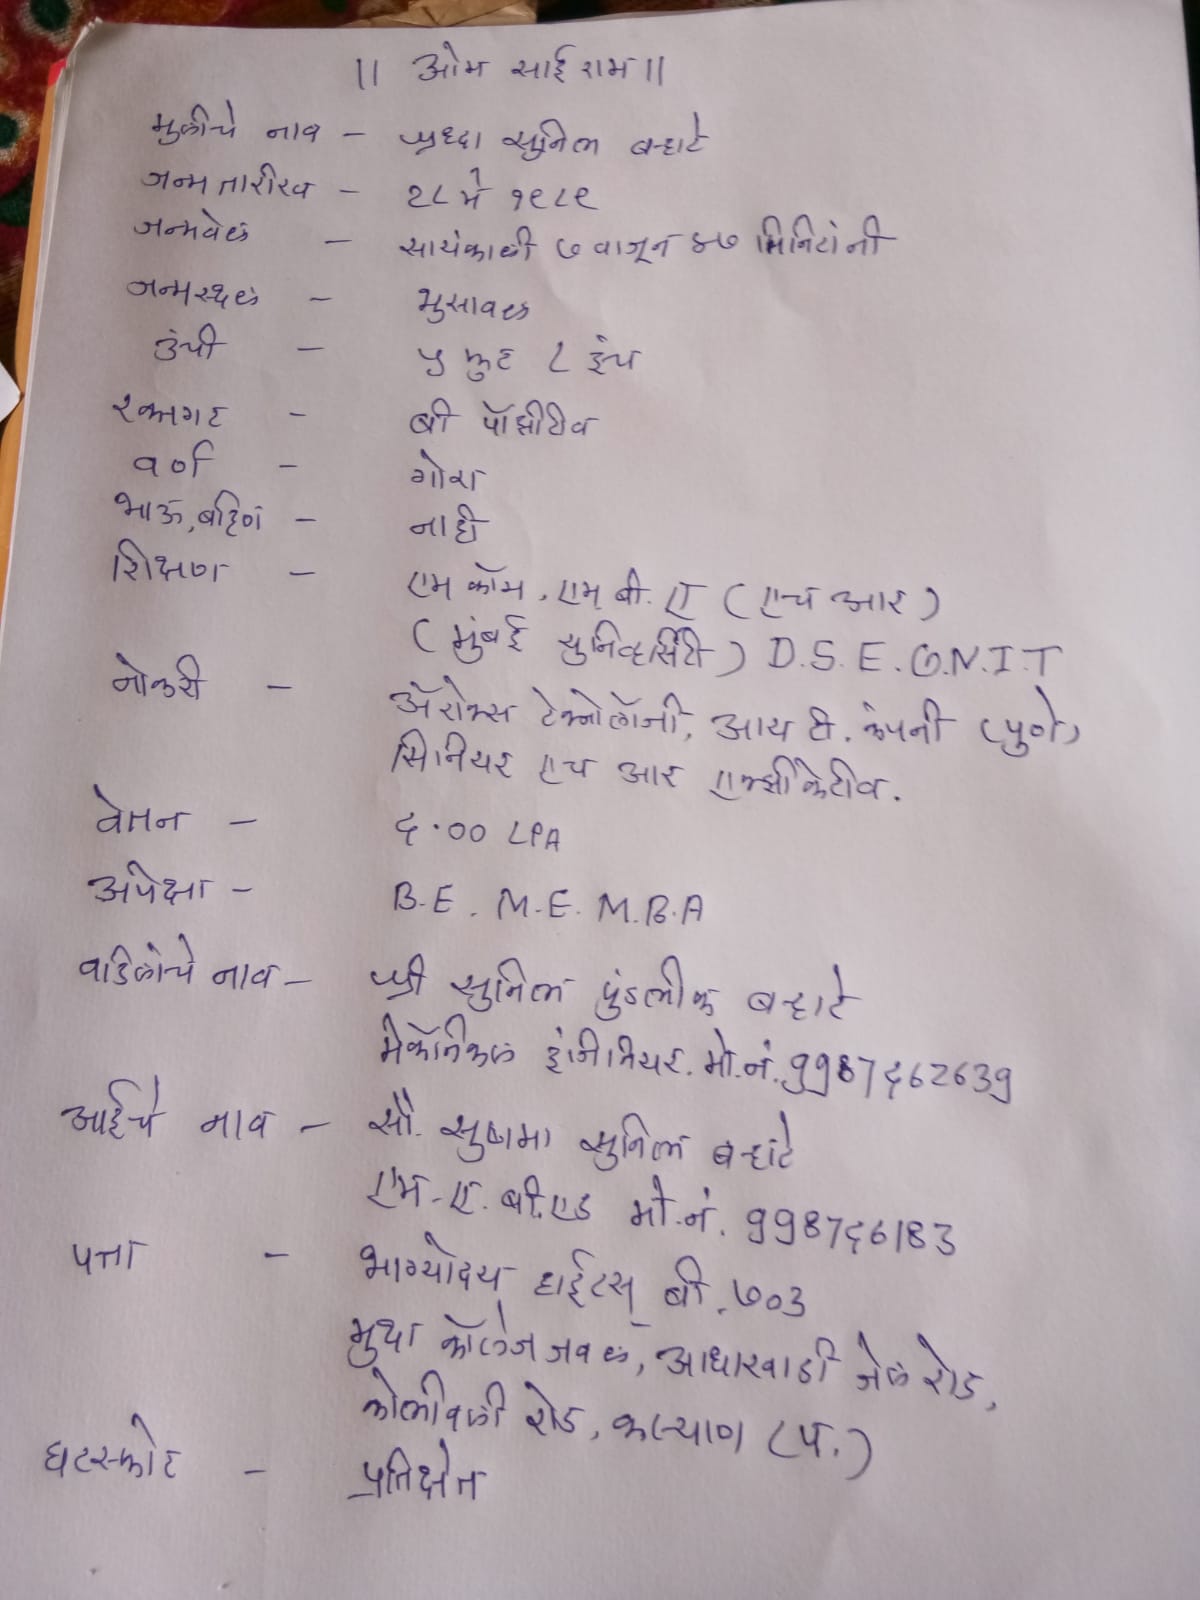 || ओम साई राम ||
मुलीचे नाव – श्रध्दा सुनिल बऱ्हाटे
जन्म तारीख – २८ मे १९८९
जन्मवेळ – सायंकाळी ७ वाजून ४७ मिनिटांनी
जन्मस्थळ – भुसावळ
उंची – ५ फुट ८ इंच
रक्तगट – बी पॉझीटीव
वर्ण – गोरा
भाऊ, बहिण – नाही
शिक्षण – एम कॉम. एम. बी. ए (एच आर)
(मुंबई युनिव्हर्सिटी) D.S.E.O.N.I.T
नोकरी – ॲरोक्स टेक्नोलॉजी, आय टी. कंपनी (पुणे)
सिनियर एच आर एक्झीकेटीव.
वेतन – ६.०० LPA
अपेक्षा – B.E. M.E. M.B.A
वडिलांचे नाव – श्री सुनिल पुंडलीक बऱ्हाटे
मेकॅनिकल इंजिनियर. मो.नं. 9987६62639
आईचे नाव – सौ. सुषमा सुनिल बऱ्हाटे
एम.ए. बी.एड मो.नं. 9987६6183
पत्ता – भाग्योदय हाईटस् बी. ७०३
मुथा कॉलेज जवळ, आधारवाडी जेल रोड,
कोलीवली रोड, कल्याण (प.)
घटस्फोट – प्रतिक्षेत